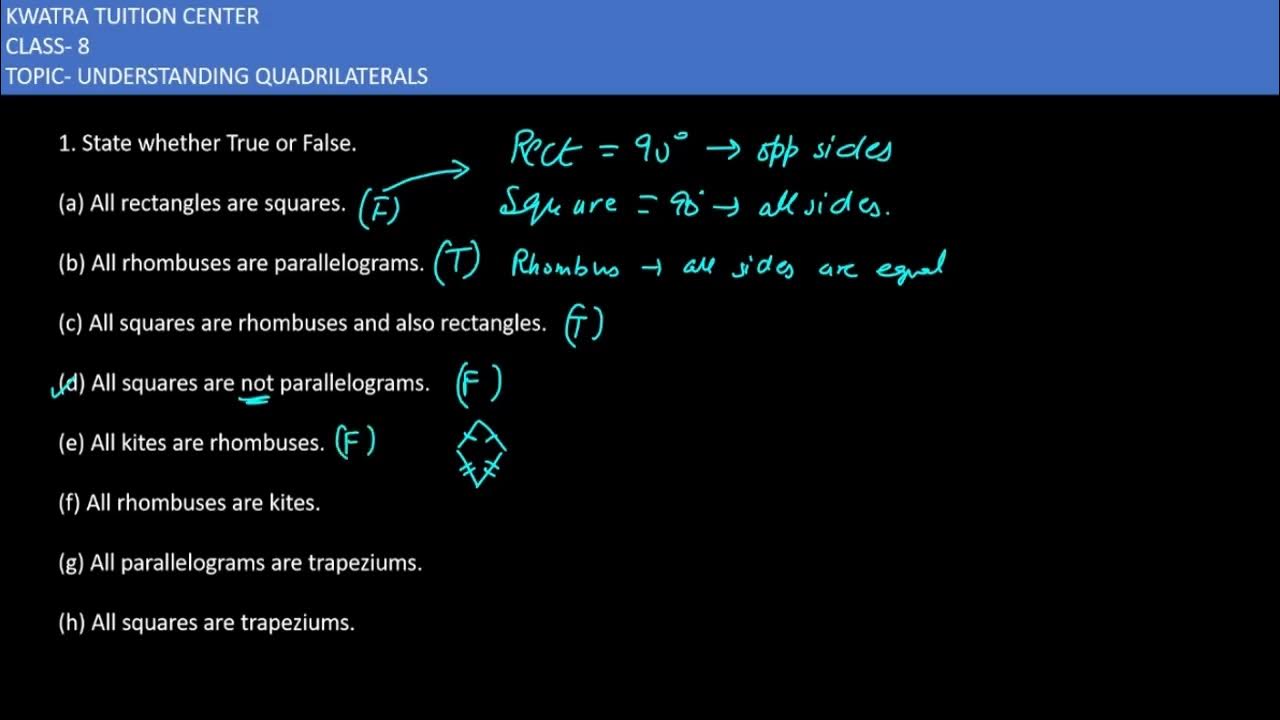 KWATRA TUITION CENTER
CLASS- 8
TOPIC- UNDERSTANDING QUADRILATERALS
1. State whether True or False.
Rect = 90° → opp sides
(a) All rectangles are squares. (F)
Square = 90° → all sides.
(b) All rhombuses are parallelograms. (T) Rhombus → all sides are equal
(c) All squares are rhombuses and also rectangles. (T)
(d) All squares are not parallelograms. (F)
(e) All kites are rhombuses. (F)
(f) All rhombuses are kites.
(g) All parallelograms are trapeziums.
(h) All squares are trapeziums.